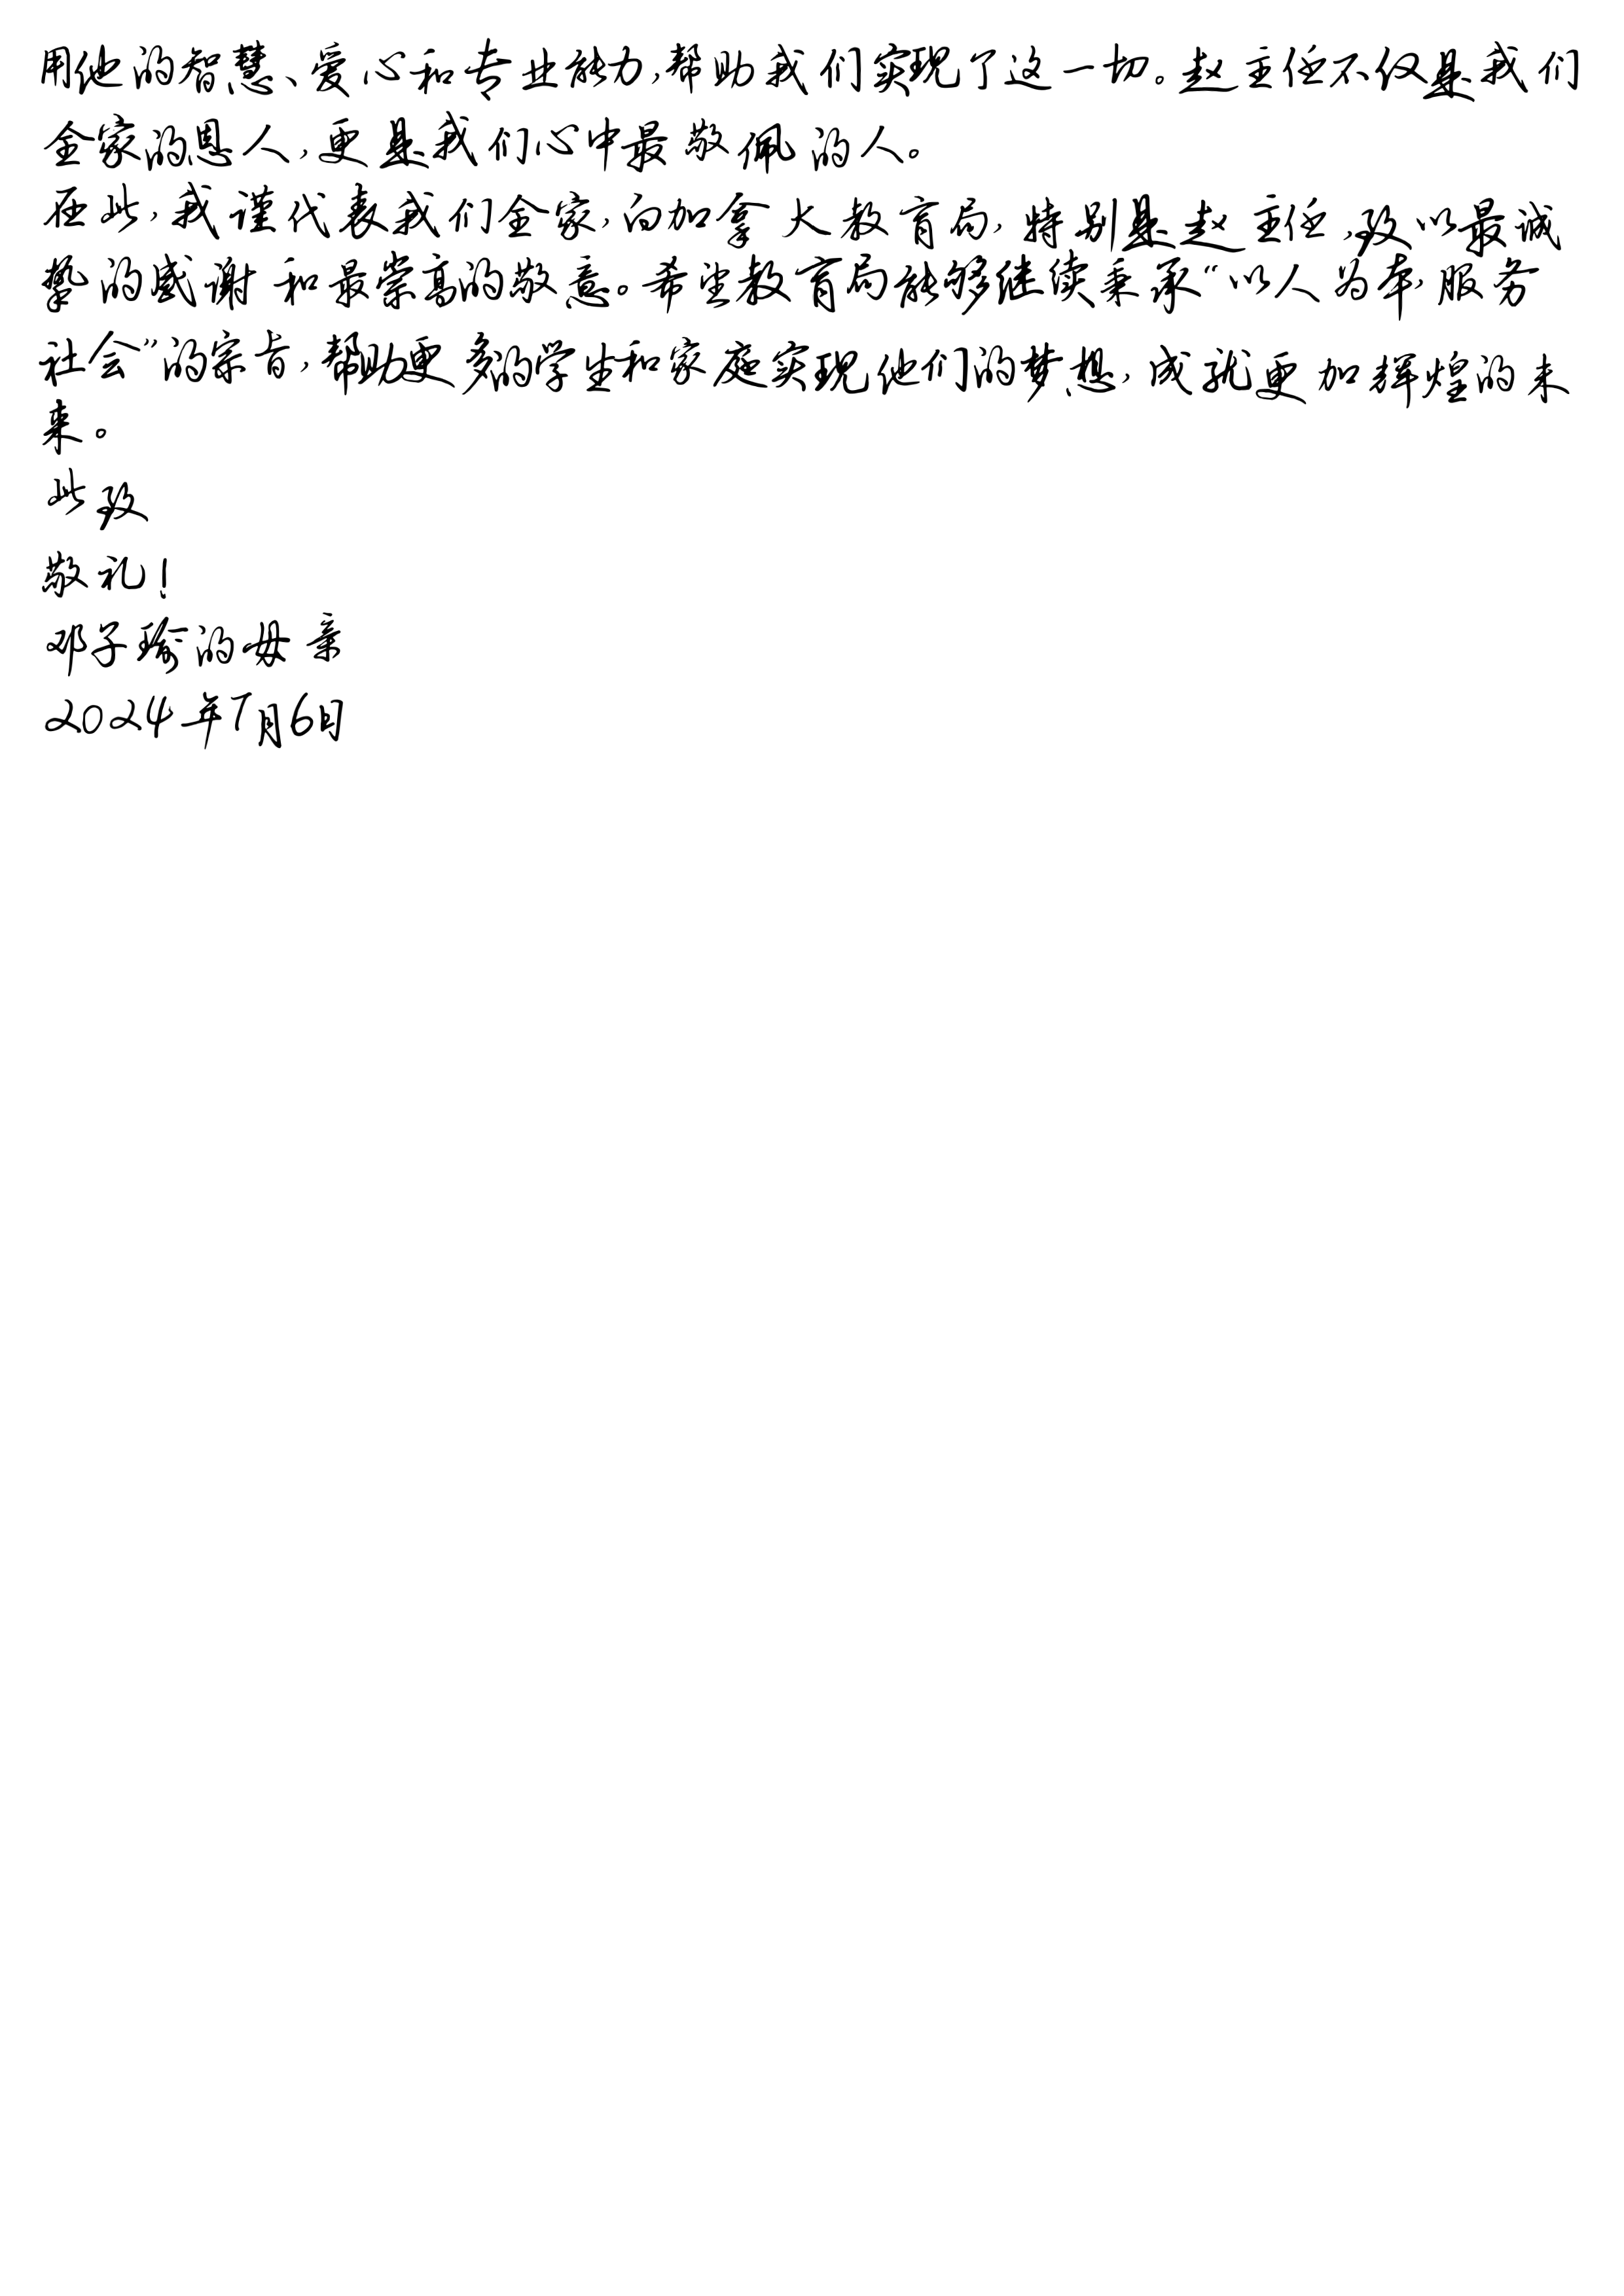 用他的智慧、爱心和专业能力,帮助我们实现了这一切。赵主任不仅是我们
全家的恩人,更是我们心中最敬佩的人。
在此,我谨代表我们全家,向加拿大教育局,特别是赵主任,致以最诚
挚的感谢和最崇高的敬意。希望教育局能够继续秉承“以人为本,服务
社会”的宗旨,帮助更多的学生和家庭实现他们的梦想,成就更加辉煌的未
来。
此致
敬礼!
邓子瑜的母亲
2024年7月6日